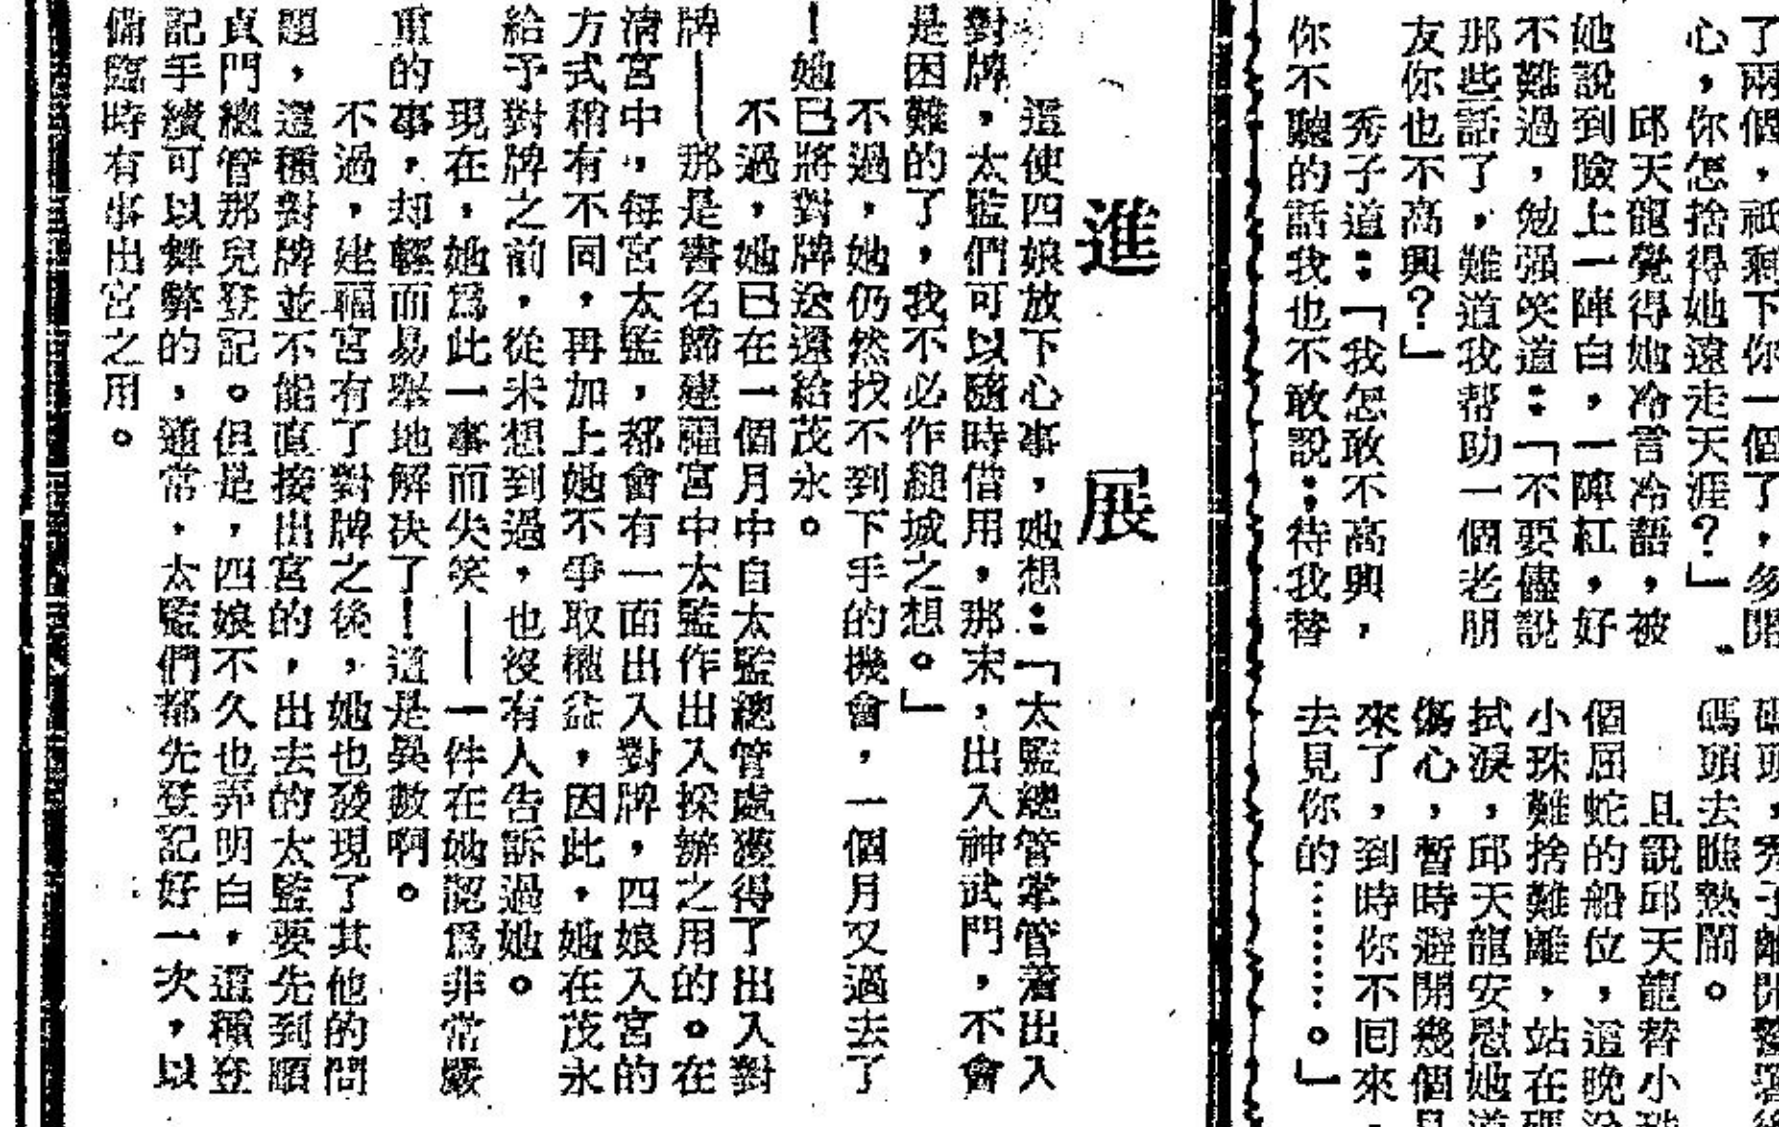 了兩個，祇剩下你一個了，
心，你怎捨得她遠走天涯？」
邱天龍覺得她冷言冷語，被
她說到臉上一陣白，一陣紅，好
不難過，勉强笑道：「不要儘說
那些話了，難道我帮助一個老朋
友你也不高興？」
秀子道：「我怎敢不高興，
你不聽的話我也不敢說：待我替
碼頭，秀子離開
碼頭去瞧熱鬧。
且說邱天龍替小
個屈蛇的船位，這晚
小珠難捨難離，站在碼
拭淚，邱天龍安慰她道
傷心，暫時避開幾個月
來了，到時你不囘來，
去見你的………。」
進展
這使四娘放下心事，她想：「太監總管掌管着出入
對牌，太監們可以隨時借用，那末，出入神武門，不會
是困難的了，我不必作縋城之想。」
不過，她仍然找不到下手的機會，一個月又過去了
！她已將對牌送還給茂永。
不過，她已在一個月中自太監總管處獲得了出入對
牌——那是書名歸建福宮中太監作出入採辦之用的。在
清宮中，每宮太監，都會有一面出入對牌，四娘入宮的
方式稍有不同，再加上她不爭取權益，因此，她在茂永
給予對牌之前，從未想到過，也沒有人告訴過她。
現在，她爲此一事而失笑——一件在她認爲非常嚴
重的事，却輕而易舉地解决了！這是異數啊。
不過，建福宮有了對牌之後，她也發現了其他的問
題，這種對牌並不能直接出宮的，出去的太監要先到順
貞門總管那兒登記。但是，四娘不久也弄明白，這種登
記手續可以舞弊的，通常，太監們都先登記好一次，以
備臨時有事出宮之用。